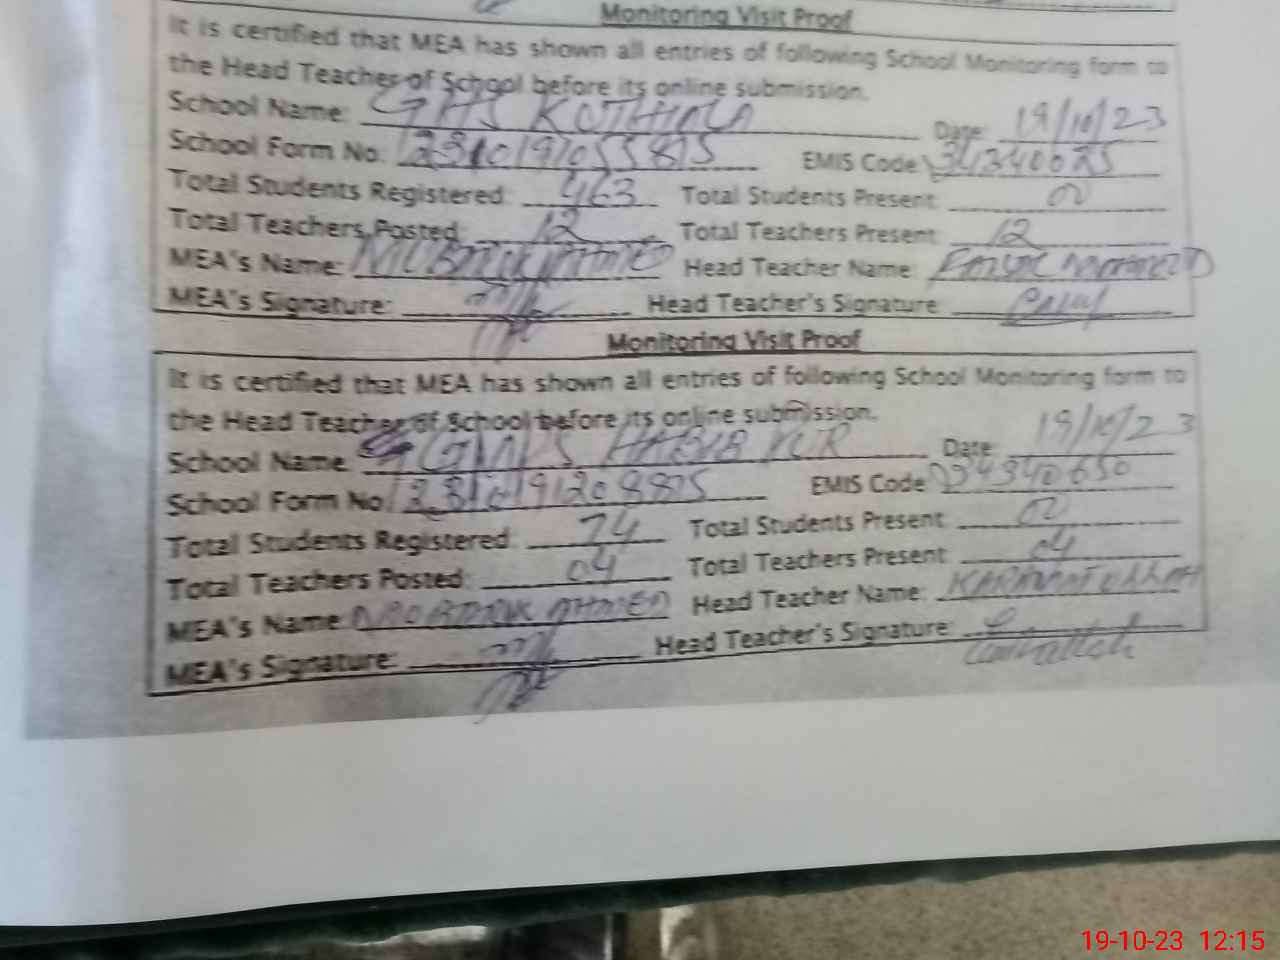 Monitoring Visit Proof
It is certified that MEA has shown all entries of following School Monitoring form to
the Head Teacher of School before its online submission.
School Name: GHS KOTHIALA Date: 19/10/23
School Form No: EMIS Code: 34340025
Total Students Registered: 463 Total Students Present: 00
Total Teachers Posted: 12 Total Teachers Present: 12
MEA's Name: AHMED Head Teacher Name:
MEA's Signature: Head Teacher's Signature:
Monitoring Visit Proof
It is certified that MEA has shown all entries of following School Monitoring form to
the Head Teacher of School before its online submission.
School Name: Date: 19/10/23
School Form No: EMIS Code: 34340650
Total Students Registered: 74 Total Students Present: 00
Total Teachers Posted: 04 Total Teachers Present: 04
MEA's Name: AHMED Head Teacher Name: KARAMATULLAH
MEA's Signature: Head Teacher's Signature:
19-10-23 12:15